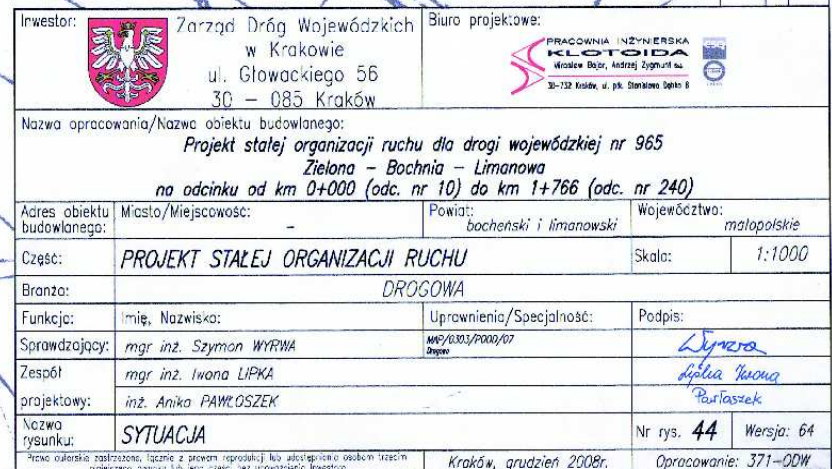 Inwestor:
Zarząd Dróg Wojewódzkich
w Krakowie
ul. Głowackiego 56
30 – 085 Kraków
Biuro projektowe:
PRACOWNIA INŻYNIERSKA
KLOTOIDA
Mirosław Bajor, Andrzej Zygmunt s.c.
30-732 Kraków, u. płk. Stanisława Dąbka 8
Nazwa opracowania/Nazwa obiektu budowlanego:
Projekt stałej organizacji ruchu dla drogi wojewódzkiej nr 965
Zielona – Bochnia – Limanowa
na odcinku od km 0+000 (odc. nr 10) do km 1+766 (odc. nr 240)
Adres obiektu budowlanego:
Miasto/Miejscowość:
–
Powiat:
bocheński i limanowski
Województwo:
małopolskie
Część:
PROJEKT STAŁEJ ORGANIZACJI RUCHU
Skala:
1:1000
Branża:
DROGOWA
Funkcja:
Imię, Nazwisko:
Uprawnienia/Specjalność:
Podpis:
Sprawdzający:
mgr inż. Szymon WYRWA
MAP/0303/POOD/07
Drogowa
Wyrwa
Zespół
mgr inż. Iwona LIPKA
Lipka Iwona
projektowy:
inż. Anika PAWŁOSZEK
Pawłoszek
Nazwa rysunku:
SYTUACJA
Nr rys. 44
Wersja: 64
Prawa autorskie zastrzeżone, łącznie z prawem reprodukcji lub udostępnienia osobom trzecim
Kraków, grudzień 2008r.
Opracowanie: 371-ODW